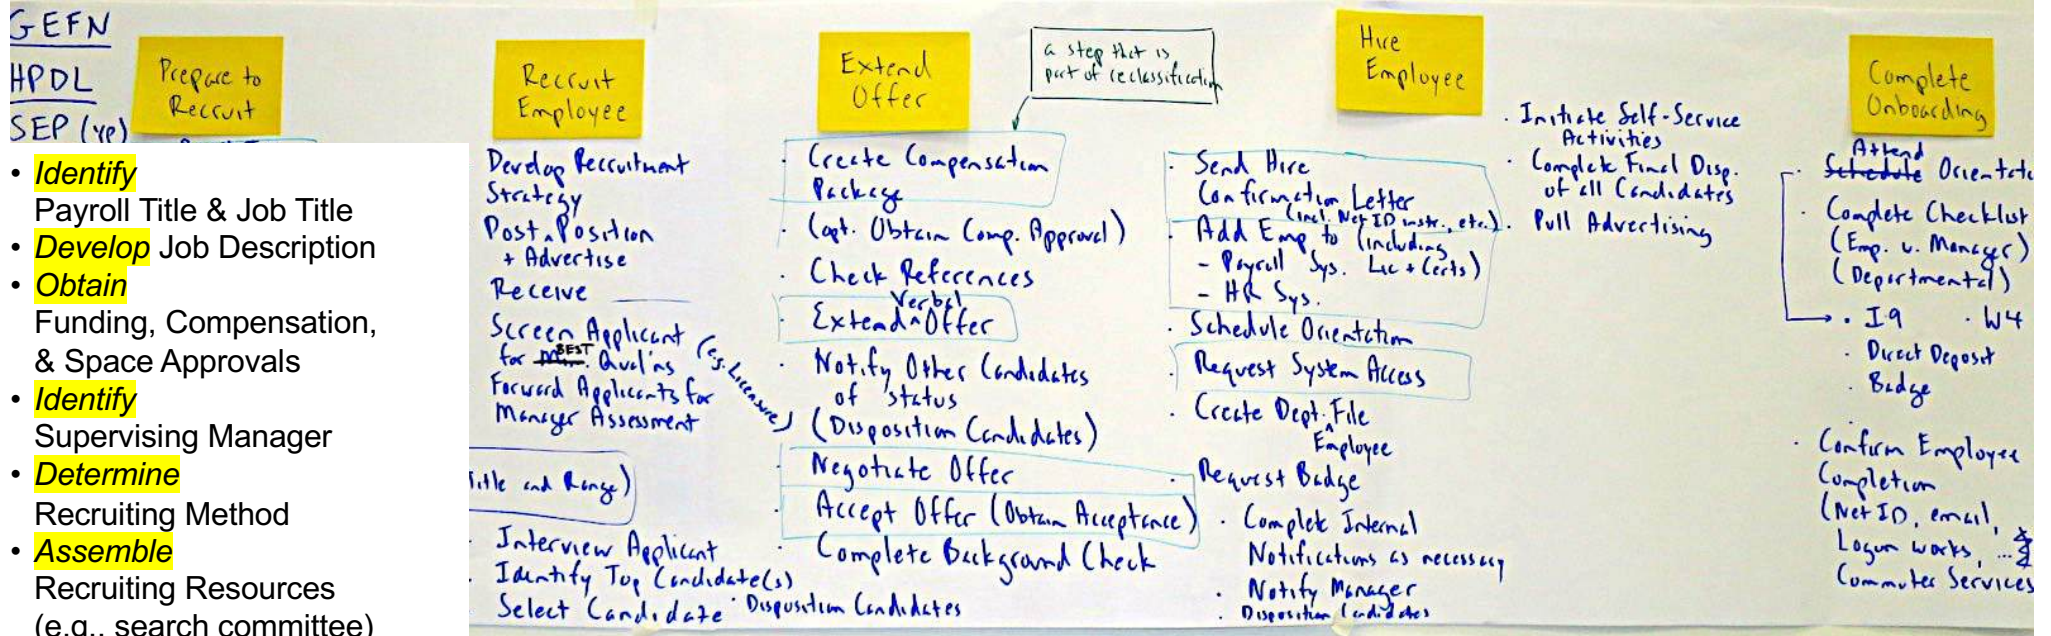 GEFN
HPDL
SEP (YP)
Prepare to
Recruit
• Identify
Payroll Title & Job Title
• Develop Job Description
• Obtain
Funding, Compensation,
& Space Approvals
• Identify
Supervising Manager
• Determine
Recruiting Method
• Assemble
Recruiting Resources
(e.g., search committee)
Recruit
Employee
Develop Recruitment
Strategy
Post Position
+ Advertise
Receive
Screen Applicant
for BEST Qual'ns
(e.g. Licensure)
Forward Applicants for
Manager Assessment
Title and Range)
· Interview Applicant
· Identify Top Candidate(s)
· Select Candidate · Disposition Candidates
Extend
Offer
a step that is
part of reclassification
· Create Compensation
Package
· (opt. Obtain Comp. Approval)
· Check References
Verbal
· Extend ^ Offer
· Notify Other Candidates
of status
(Disposition Candidates)
· Negotiate Offer
· Accept Offer (Obtain Acceptance)
· Complete Background Check
Hire
Employee
· Send Hire
Confirmation Letter
(incl. Net ID instr., etc.)
· Add Emp. to (including
- Payroll Sys. Lic + Certs)
- HR Sys.
· Schedule Orientation
· Request System Access
· Create Dept. File
^
Employee
· Request Badge
· Complete Internal
Notifications as necessary
· Notify Manager
· Disposition Candidates
· Initiate Self-Service
Activities
· Complete Final Disp.
of all Candidates
· Pull Advertising
Complete
Onboarding
Attend
· Schedule Orientatc
· Complete Checklist
(Emp. v. Manager)
(Departmental)
· I9 · W4
· Direct Deposit
· Badge
· Confirm Employee
Completion
(Net ID, email,
Logon works, ...
Commuter Services